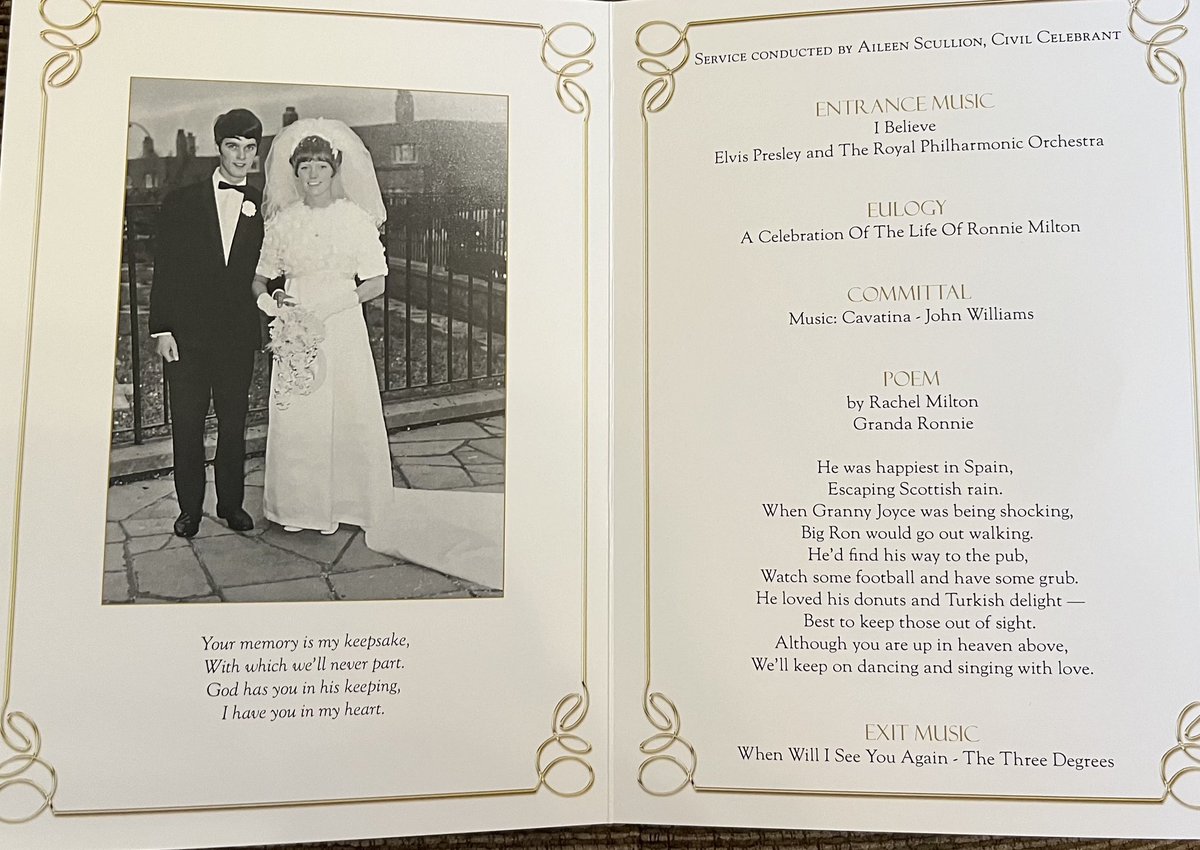 Your memory is my keepsake,
With which we'll never part.
God has you in his keeping,
I have you in my heart.
Service conducted by Aileen Scullion, Civil Celebrant
ENTRANCE MUSIC
I Believe
Elvis Presley and The Royal Philharmonic Orchestra
EULOGY
A Celebration Of The Life Of Ronnie Milton
COMMITTAL
Music: Cavatina - John Williams
POEM
by Rachel Milton
Granda Ronnie
He was happiest in Spain,
Escaping Scottish rain.
When Granny Joyce was being shocking,
Big Ron would go out walking.
He'd find his way to the pub,
Watch some football and have some grub.
He loved his donuts and Turkish delight —
Best to keep those out of sight.
Although you are up in heaven above,
We'll keep on dancing and singing with love.
EXIT MUSIC
When Will I See You Again - The Three Degrees